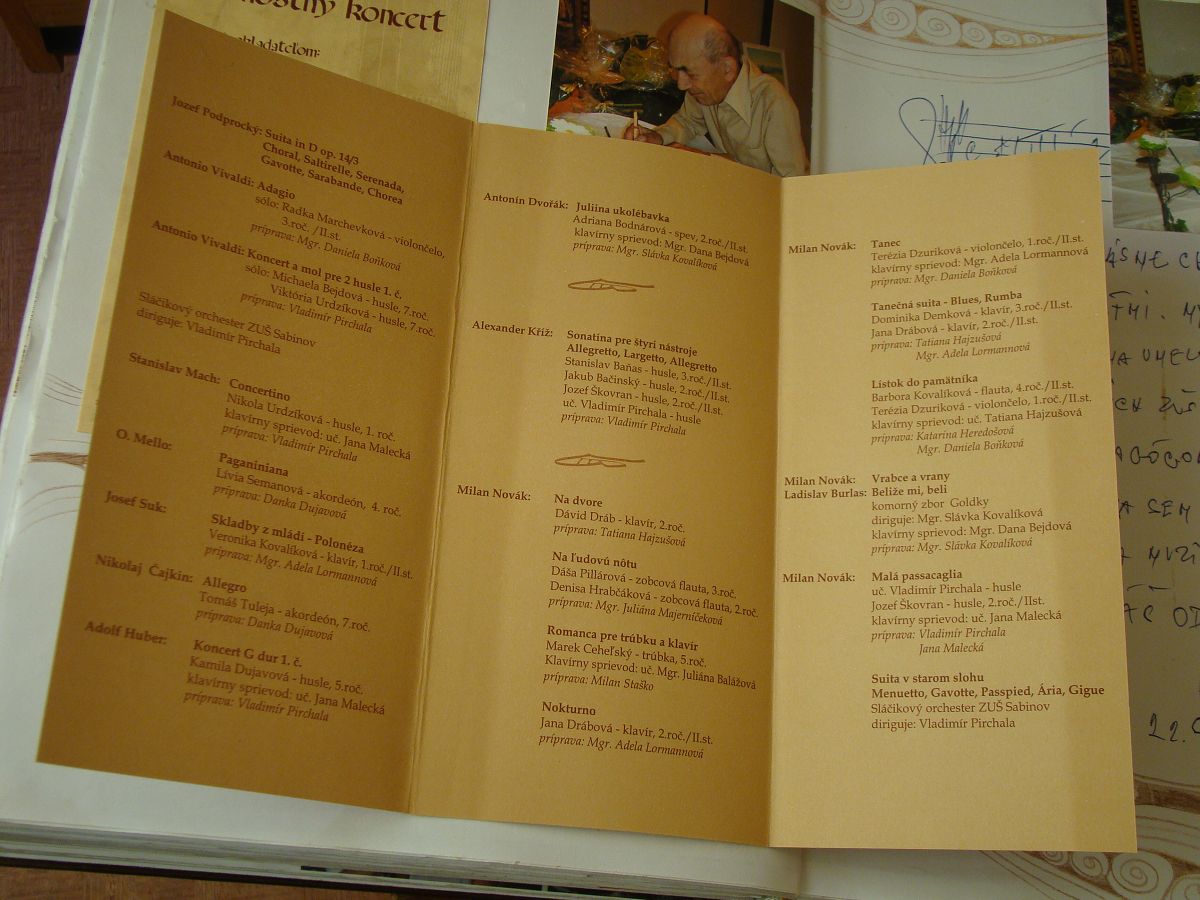 koncert
Jozef Podprocký: Suita in D op. 14/3
Choral, Saltirelle, Serenada,
Gavotte, Sarabande, Chorea
Antonio Vivaldi: Adagio
sólo: Radka Marchevková - violončelo,
3.roč. /II.st.
príprava: Mgr. Daniela Boňková
Antonio Vivaldi: Koncert a mol pre 2 husle 1. č.
sólo: Michaela Bejdová - husle, 7.roč.
Viktória Urdzíková - husle, 7.roč.
príprava: Vladimír Pirchala
Sláčikový orchester ZUŠ Sabinov
diriguje: Vladimír Pirchala
Stanislav Mach: Concertino
Nikola Urdzíková - husle, 1. roč.
klavírny sprievod: uč. Jana Malecká
príprava: Vladimír Pirchala
O. Mello: Paganiniana
Lívia Semanová - akordeón, 4. roč.
príprava: Danka Dujavová
Josef Suk: Skladby z mládí - Polonéza
Veronika Kovalíková - klavír, 1.roč./II.st.
príprava: Mgr. Adela Lormannová
Nikolaj Čajkin: Allegro
Tomáš Tuleja - akordeón, 7.roč.
príprava: Danka Dujavová
Adolf Huber: Koncert G dur 1. č.
Kamila Dujavová - husle, 5.roč.
klavírny sprievod: uč. Jana Malecká
príprava: Vladimír Pirchala
Antonín Dvořák: Juliina ukolébavka
Adriana Bodnárová - spev, 2.roč./II.st.
klavírny sprievod: Mgr. Dana Bejdová
príprava: Mgr. Slávka Kovalíková
Alexander Kříž: Sonatína pre štyri nástroje
Allegretto, Largetto, Allegretto
Stanislav Baňas - husle, 3.roč./II.st.
Jakub Bačinský - husle, 2.roč./II.st.
Jozef Škovran - husle, 2.roč./II.st.
uč. Vladimír Pirchala - husle
príprava: Vladimír Pirchala
Milan Novák: Na dvore
Dávid Dráb - klavír, 2.roč.
príprava: Tatiana Hajzušová
Na ľudovú nôtu
Dáša Pillárová - zobcová flauta, 3.roč.
Denisa Hrabčáková - zobcová flauta, 2.roč.
príprava: Mgr. Juliána Majerníčeková
Romanca pre trúbku a klavír
Marek Ceheľský - trúbka, 5.roč.
Klavírny sprievod: uč. Mgr. Juliána Balážová
príprava: Milan Staško
Nokturno
Jana Drábová - klavír, 2.roč./II.st.
príprava: Mgr. Adela Lormannová
Milan Novák: Tanec
Terézia Dzuriková - violončelo, 1.roč./II.st.
klavírny sprievod: Mgr. Adela Lormannová
príprava: Mgr. Daniela Boňková
Tanečná suita - Blues, Rumba
Dominika Demková - klavír, 3.roč./II.st.
Jana Drábová - klavír, 2.roč./II.st.
príprava: Tatiana Hajzušová
Mgr. Adela Lormannová
Lístok do pamätníka
Barbora Kovalíková - flauta, 4.roč./II.st.
Terézia Dzuriková - violončelo, 1.roč./II.st.
klavírny sprievod: uč. Tatiana Hajzušová
príprava: Katarína Heredošová
Mgr. Daniela Boňková
Milan Novák: Vrabce a vrany
Ladislav Burlas: Beliže mi, beli
komorný zbor Goldky
diriguje: Mgr. Slávka Kovalíková
klavírny sprievod: Mgr. Dana Bejdová
príprava: Mgr. Slávka Kovalíková
Milan Novák: Malá passacaglia
uč. Vladimír Pirchala - husle
Jozef Škovran - husle, 2.roč./IIst.
klavírny sprievod: uč. Jana Malecká
príprava: Vladimír Pirchala
Jana Malecká
Suita v starom slohu
Menuetto, Gavotte, Passpied, Ária, Gigue
Sláčikový orchester ZUŠ Sabinov
diriguje: Vladimír Pirchala
SEM